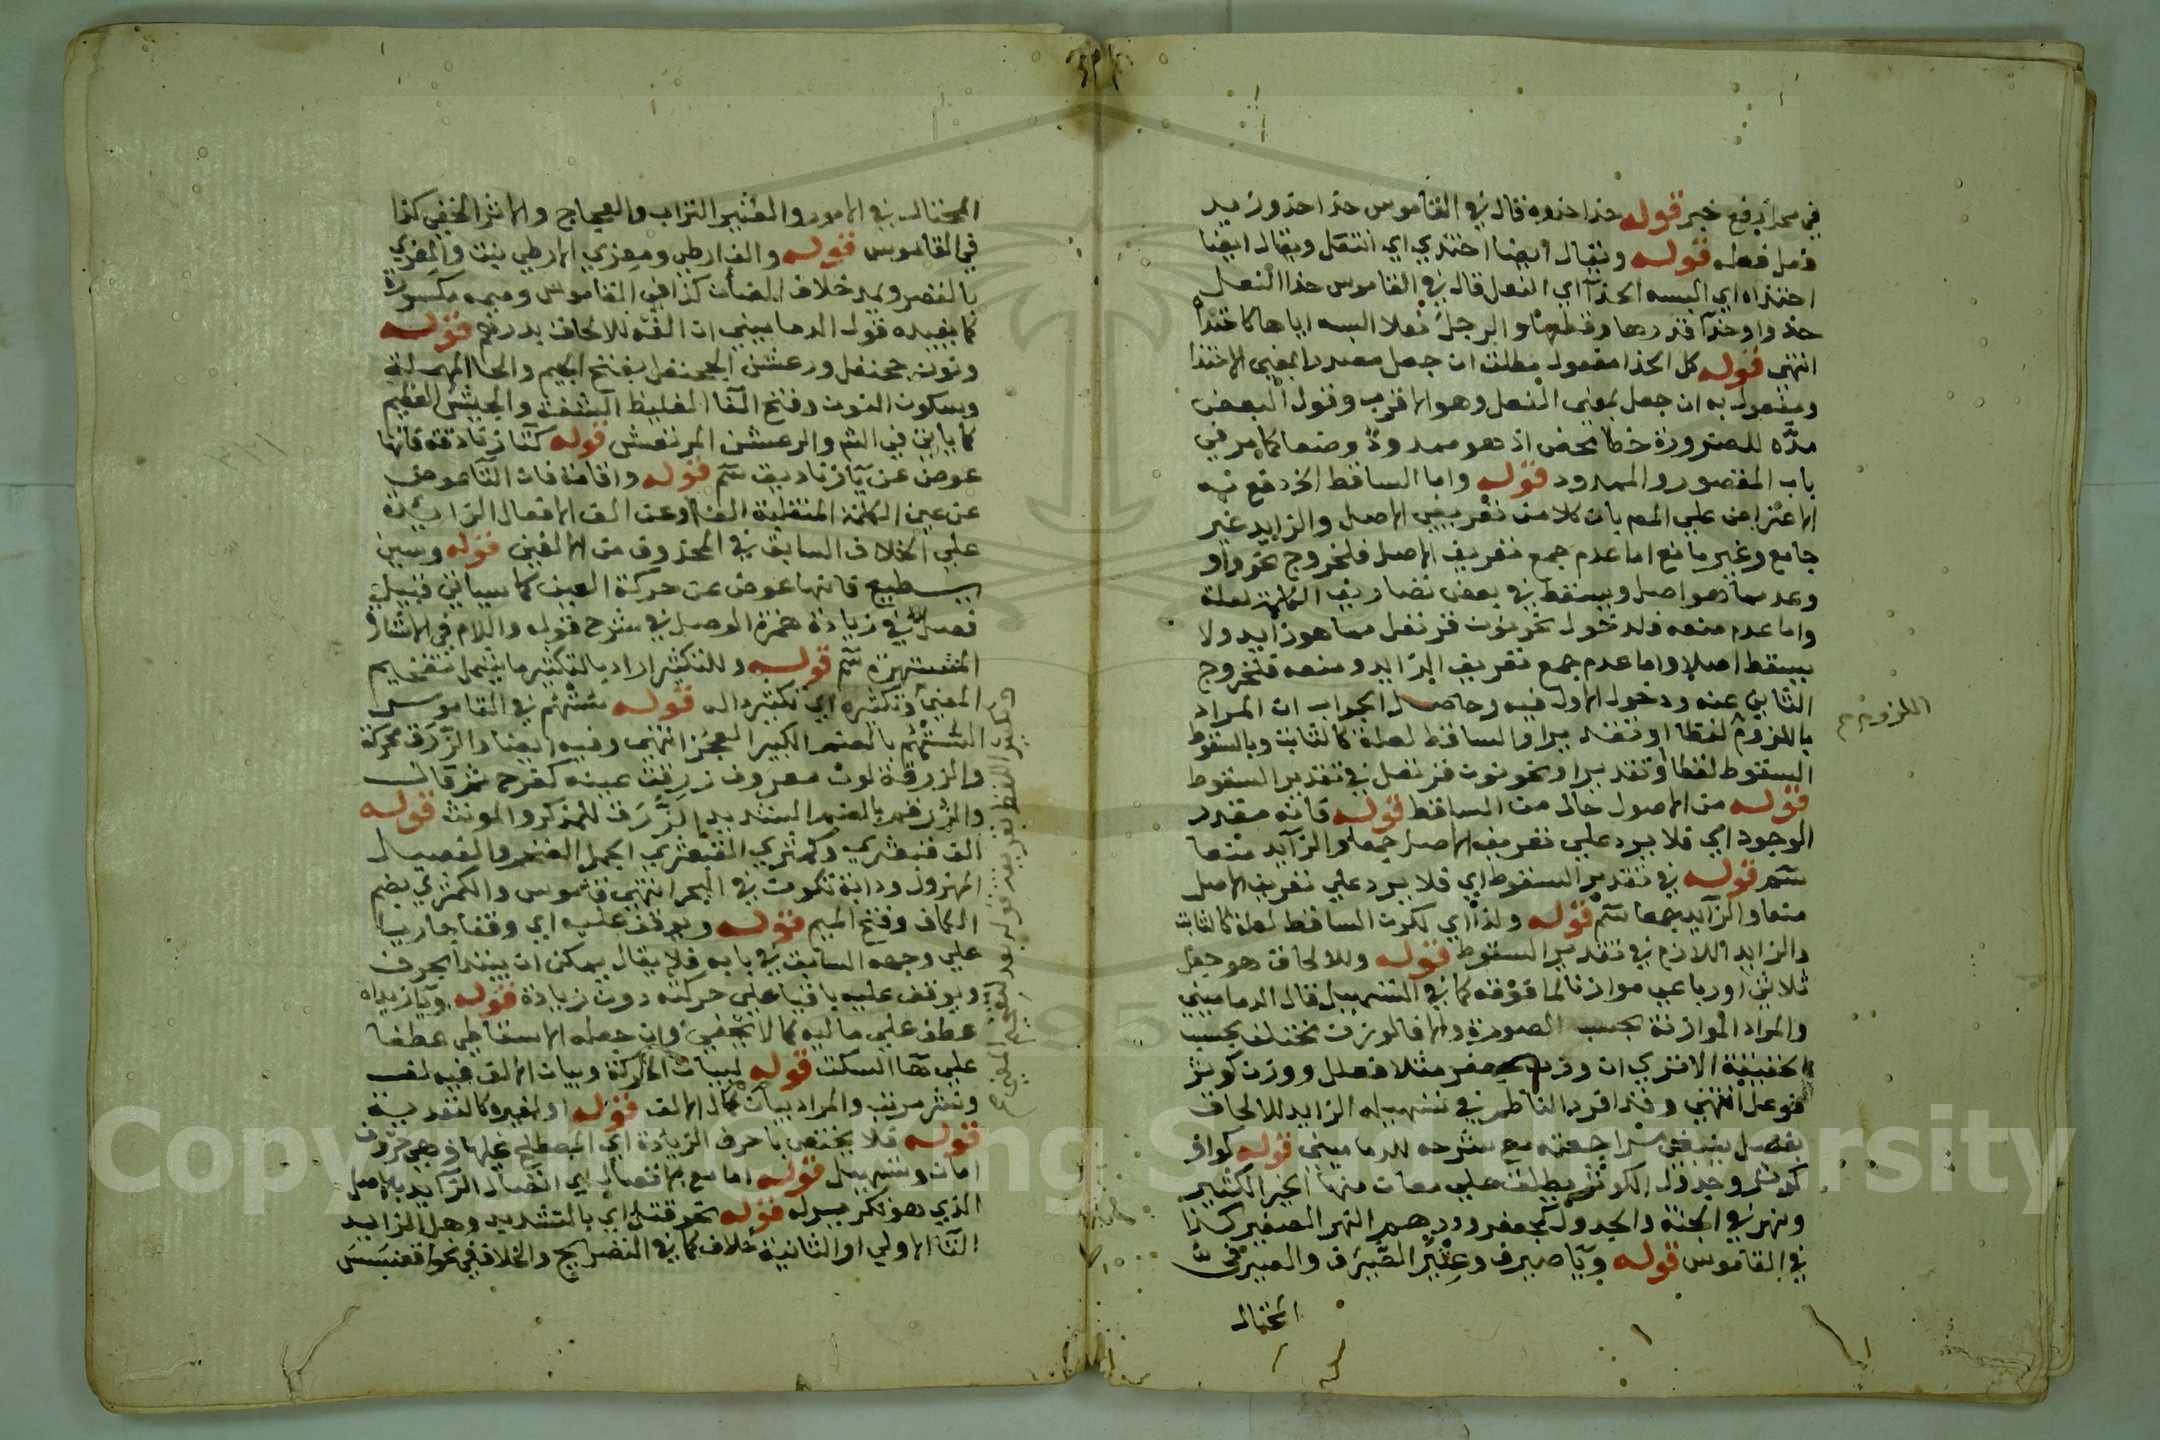 في محل رفع خبر قوله حذا حذوه قال في القاموس حذا حذو زيد
فعل فعله قوله ويقال ايضا احتذي اي انتعل ويقال ايضا
احتذاه اي البسه الحذآ اي النعل قال في القاموس حذا النعل
حذوا وحذآ قدرها وقطعها والرجل نعلا البسه اياها كاحتذا
انتهى قوله كل الحذا مفعول مطلق ان جعل مصدرا بمعني الاحتذا
ومفعول به ان جعل بمعنى النعل وهو الاقرب وقول البعض
مدّه للضرورة خطا محض اذ هو ممدود وضعا كما مر في
باب المقصور والممدود قوله واما الساقط الخ دفع به
الاعتراض علي المص بان كلا من تعريفي الاصل والزايد غير
جامع وغير مانع اما عدم جمع تعريف الاصل فلخروج نحو واو
وعد مما هو اصل ويسقط في بعض تصاريف الكلمة لعلة
واما عدم منعه فلدخول نحو نون قرنفل مما هو زايد ولا
يسقط اصلا واما عدم جمع تعريف الزايد ومنعه فلخروج
الثاني عنه ودخول الاول فيه وحاصل الجواب ان المراد
باللزوم لفظا او تقديرا والساقط لعلة كالثابت وبالسقوط
السقوط لفظا او تقديرا ونحو نون قرنفل في تقدير السقوط
قوله من الاصول حال من الساقط قوله فانه مقدر
الوجود اي فلا يرد علي تعريف الاصل جمعا والزآيد منعا
سم قوله في تقدير السقوط اي فلا يرد علي تعريف الاصل
منعا والزآيد جمعا سم قوله ولذا اي لكون الساقط لعلة كالثابت
والزايد اللازم في تقدير السقوط قوله وللالحاق هو جعل
ثلاثي او رباعي موازنا لما فوقه كما في التسهيل قال الدماميني
والمراد الموازنة بحسب الصورة والا فالوزن مختلف بحسب
الحقيقة الا تري ان وزن جعفر مثلا فعلل ووزن كوثر
فوعل انتهى وقد افرد الناظم في تسهيله الزايد للالحاق
بفصل ينبغي مراجعته مع شرحه للدماميني قوله كواو
كوثر وجدول الكوثر يطلق علي معان منها الخير الكثير
ونهر في الجنة والجدول كجعفر ودرهم النهر الصغير كذا
في القاموس قوله ويآ صيرف وعثير الصَّيرَف والصيرفي
المحتال
اللزوم
المحتال في الامور والعثير التراب والعجاج والاثر الخفي كذا
في القاموس قوله والف ارطي ومعزي الارطي نبت والمعزي
بالقصر ويمد خلاف الضأن كذا في القاموس وميمه مكسورة
كما يفيده قول الدماميني ان الفه للالحاق بدرهم قوله
ونون جحنفل ورعشن الجحنفل بفتح الجيم والحا المهملة
وسكون النون وفتح الفآ الغليظ الشفة والجيش العظيم
كما ياتي في الشر والرعشن المرتعش قوله كتآ زنادقة فانها
عوض عن يآ زناديق سم قوله واقامة فان التآ عوض
عن عين الكلمة المنقلبة الفا او عن الف الافعال الزايدة
علي الخلاف السابق في المحذوف من الالفين قوله وسين
يسطيع فانها عوض عن حركة العين كما سياتي قبيل
فصل في زيادة همزة الوصل في شرح قوله واللام في الاشارة
المشتهرة سم قوله وللتكثير اراد بالتكثير ما يشمل تفخيم
المعنى وتكثيره اي تكثير داله قوله ستهم في القاموس
الستهم بالضم الكبير العجز انتهى وفيه ايضا والزرق محركة
والزرقة لون معروف زرقت عينه كفرح ثم قال
والزرقم بالضم الشديد الزَّرَق للمذكر والمونث قوله
الف قبعثري وكمثري القبعثري الجمل الضخم والفصيل
المهزول ودابة تكون في البحر انتهى قاموس والكمثري بضم
الكاف وفتح الميم قوله ويوقف عليه اي وقفا جاريا
علي وجهه السابق في بابه فلا يقال يمكن ان يبتدا بحرف
ويوقف عليه باقيا علي حركته دون زيادة قوله ويآ زيداه
عطف علي ماليه كما لا يخفي وان جعله الاسقاطي عطفا
علي هآ السكت قوله لبيان الحركة وبيان الالف فيه لف
ونشر مرتب والمراد بيان كمال الالف قوله او لغيره كالتعدية
قوله فلا يختص باحرف الزيادة اي المصطلح عليها وهي حروف
امان وتسهيل قوله اما مع اتصال اي اتصال الزآيد بالاصل
الذي هو تكريرله قوله نحو قتل اي بالتشديد وهل الزايد
التآ الاولي او الثانية خلاف كما في التصريح والخلاف في نحو اقعنسس